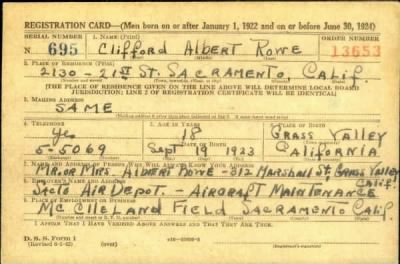 REGISTRATION CARD—(Men born on or after January 1, 1922 and on or before June 30, 1924)
SERIAL NUMBER 1. NAME (Print) ORDER NUMBER
N 695 Clifford Albert Rowe 13653
(First) (Middle) (Last)
2. PLACE OF RESIDENCE (Print)
2130 - 21st St. SACRAMENTO, CALIF
[THE PLACE OF RESIDENCE GIVEN ON THE LINE ABOVE WILL DETERMINE LOCAL BOARD
JURISDICTION; LINE 2 OF REGISTRATION CERTIFICATE WILL BE IDENTICAL]
3. MAILING ADDRESS
SAME
4. TELEPHONE 5. AGE IN YEARS 6. PLACE OF BIRTH
yes 18 GRASS VALLEY
DATE OF BIRTH
5-5069 Sept 19 1923 CALIFORNIA
7. NAME AND ADDRESS OF PERSON WHO WILL ALWAYS KNOW YOUR ADDRESS
MR. or MRS. Albert ROWE - 312 Marshall St. Grass Valley
Calif.
8. EMPLOYER'S NAME AND ADDRESS
Sacto AIR DEPOT. - AIRCRAFT MAINTENANCE
9. PLACE OF EMPLOYMENT OR BUSINESS
Mc Clleland Field Sacramento Calif
I AFFIRM THAT I HAVE VERIFIED ABOVE ANSWERS AND THAT THEY ARE TRUE.
D. S. S. Form 1
(over)
(Registrant's signature)